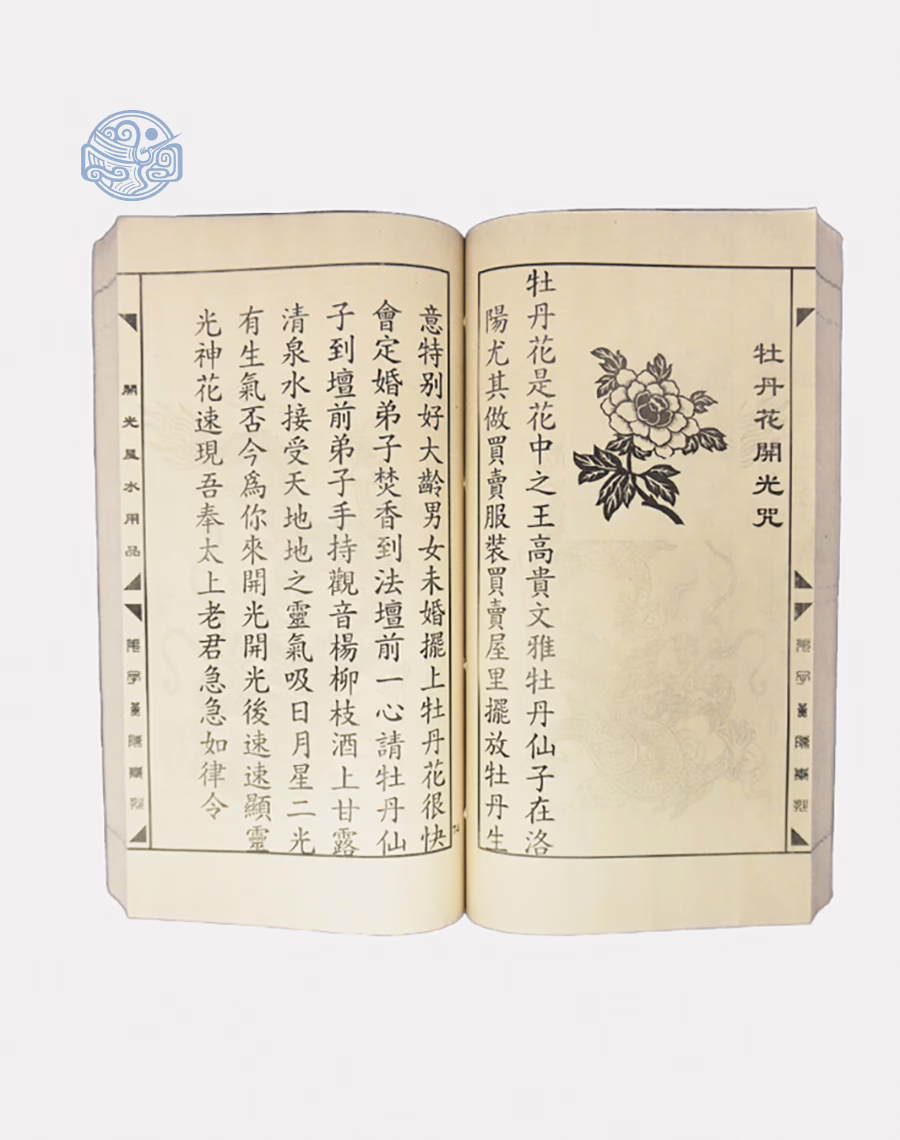 牡丹花開光咒
牡丹花是花中之王高貴文雅牡丹仙子在洛
陽尤其做買賣服裝買賣屋里擺放牡丹生
意特别好大齡男女未婚擺上牡丹花很快
會定婚弟子焚香到法壇前一心請牡丹仙
子到壇前弟子手持觀音楊柳枝酒上甘露
清泉水接受天地地之靈氣吸日月星二光
有生氣否今爲你來開光開光後速速顯靈
光神花速現吾奉太上老君急急如律令
開光風水用品
74